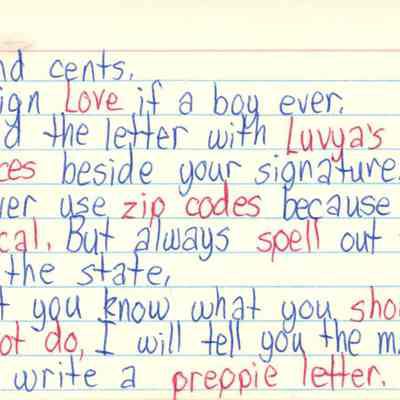 nd cents.
ign Love if a boy ever.
d the letter with Luvya's
ces beside your signature.
ver use zip codes because
cal. But always spell out
the state,
t you know what you sho
ot do, I will tell you the m
write a preppie letter.